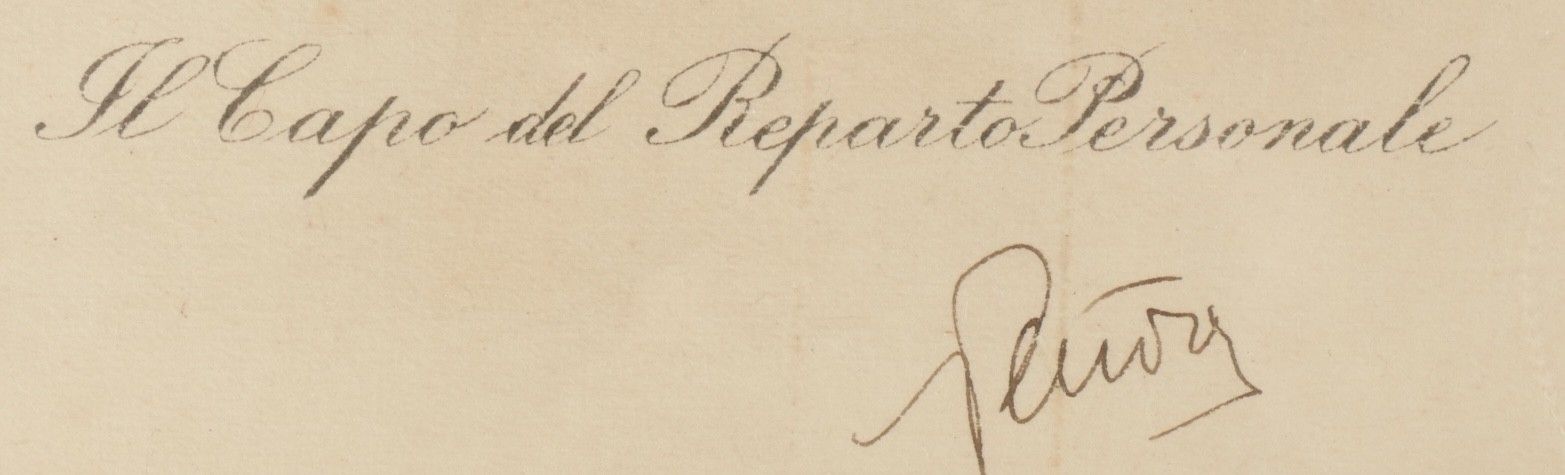 Il Capo del Reparto Personale